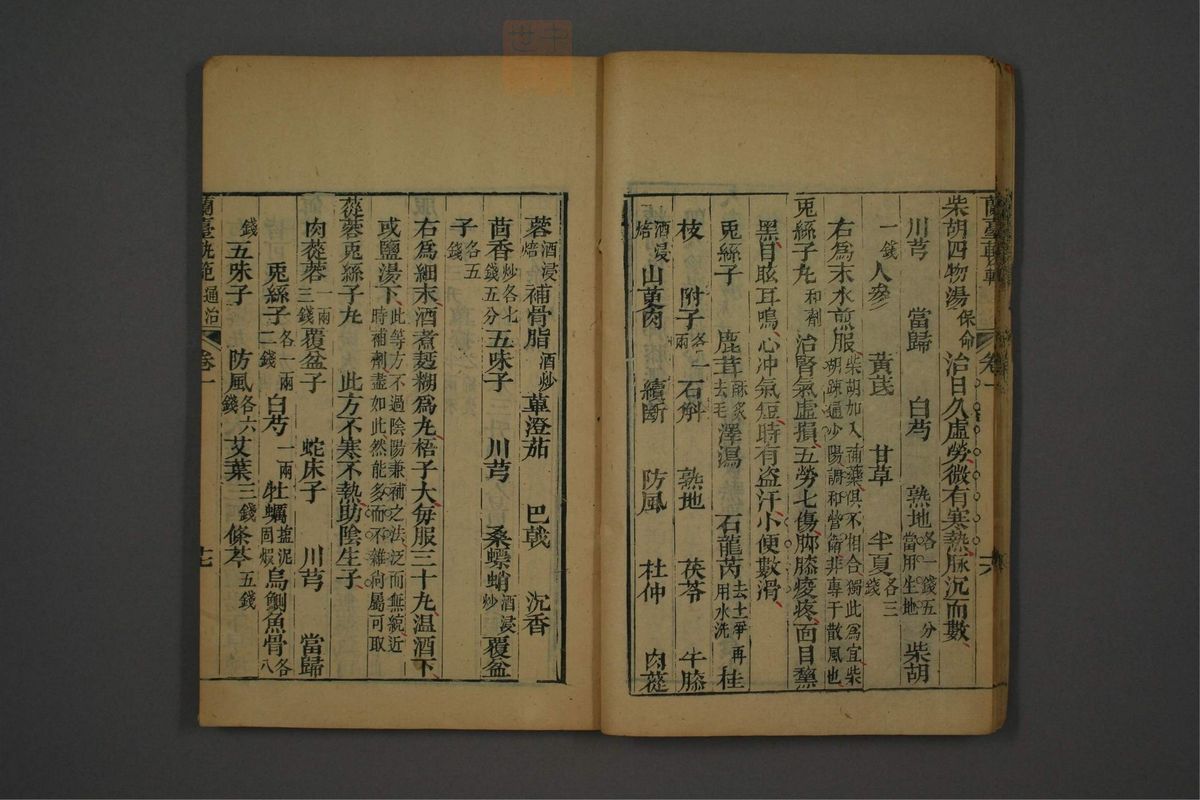 柴胡四物湯保命 治日久虛勞微有寒熱脉沉而數
川芎 當歸 白芍 熟地各一錢五分當用生地 柴胡
一錢 人參 黃芪 甘草 半夏各三錢
右爲末水煎服柴胡加入補藥俱不相合獨此爲宜柴胡疎通少陽調和營衛非專于散風也
兎絲子丸和劑 治腎氣虛損五勞七傷脚膝痠疼面目黧
黑目眩耳鳴心冲氣短時有盜汗小便數滑
兎絲子 鹿茸酥炙去毛 澤瀉 石龍芮去土爭再用水洗 桂
枝 附子各一兩 石斛 熟地 茯苓 牛膝
酒浸焙 山萸肉 續斷 防風 杜仲 肉蓯
蓉酒浸焙 補骨脂酒炒 蓽澄茄 巴戟 沉香
茴香炒各七錢五分 五味子 川芎 桑螵蛸酒浸炒 覆盆
子各五錢
右爲細末酒煮麫糊爲丸梧子大每服三十丸温酒下
或鹽湯下此等方不過陰陽兼補之法泛而無統近時補劑盡如此然能多而不雜尚屬可取
蓯蓉兎絲子丸 此方不寒不熱助陰生子
肉蓯蓉一兩三錢 覆盆子 蛇床子 川芎 當歸
兎絲子各一兩二錢 白芍一兩 牡蠣塩泥固煆 烏鰂魚骨各八
錢 五味子 防風各六錢 艾葉三錢 條芩五錢
蘭臺軌範通治 卷一 十七